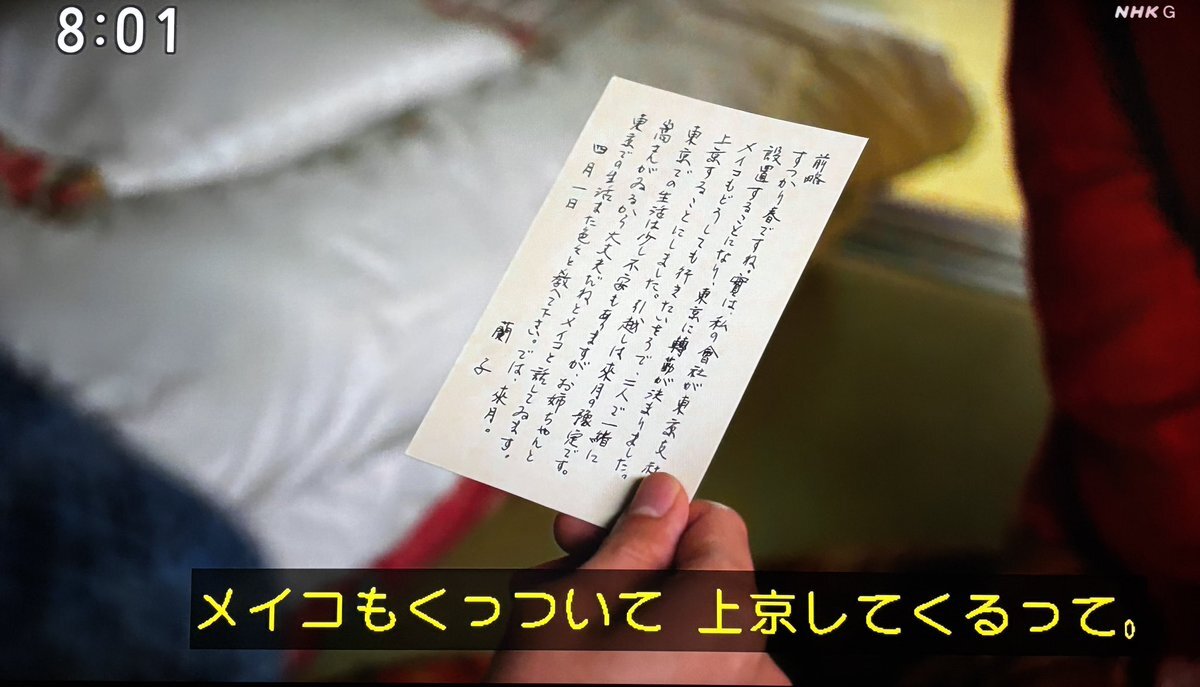 8:01
NHK G
前略
すつかり春ですね。實は、私の會社が東京支社
設置することになり、東京に轉勤が決まりました。
メイコもどうしても行きたいさうで、二人で一緒に
上京することにしました。引越しは來月の豫定です。
東京での生活は少し不安もありますが、お姉ちやんと
嵩さんがゐるから大丈夫だねとメイコと話してゐます。
東京での生活また色々と教へて下さい。では、來月。
四月一日
蘭子
メイコもくっついて 上京してくるって。